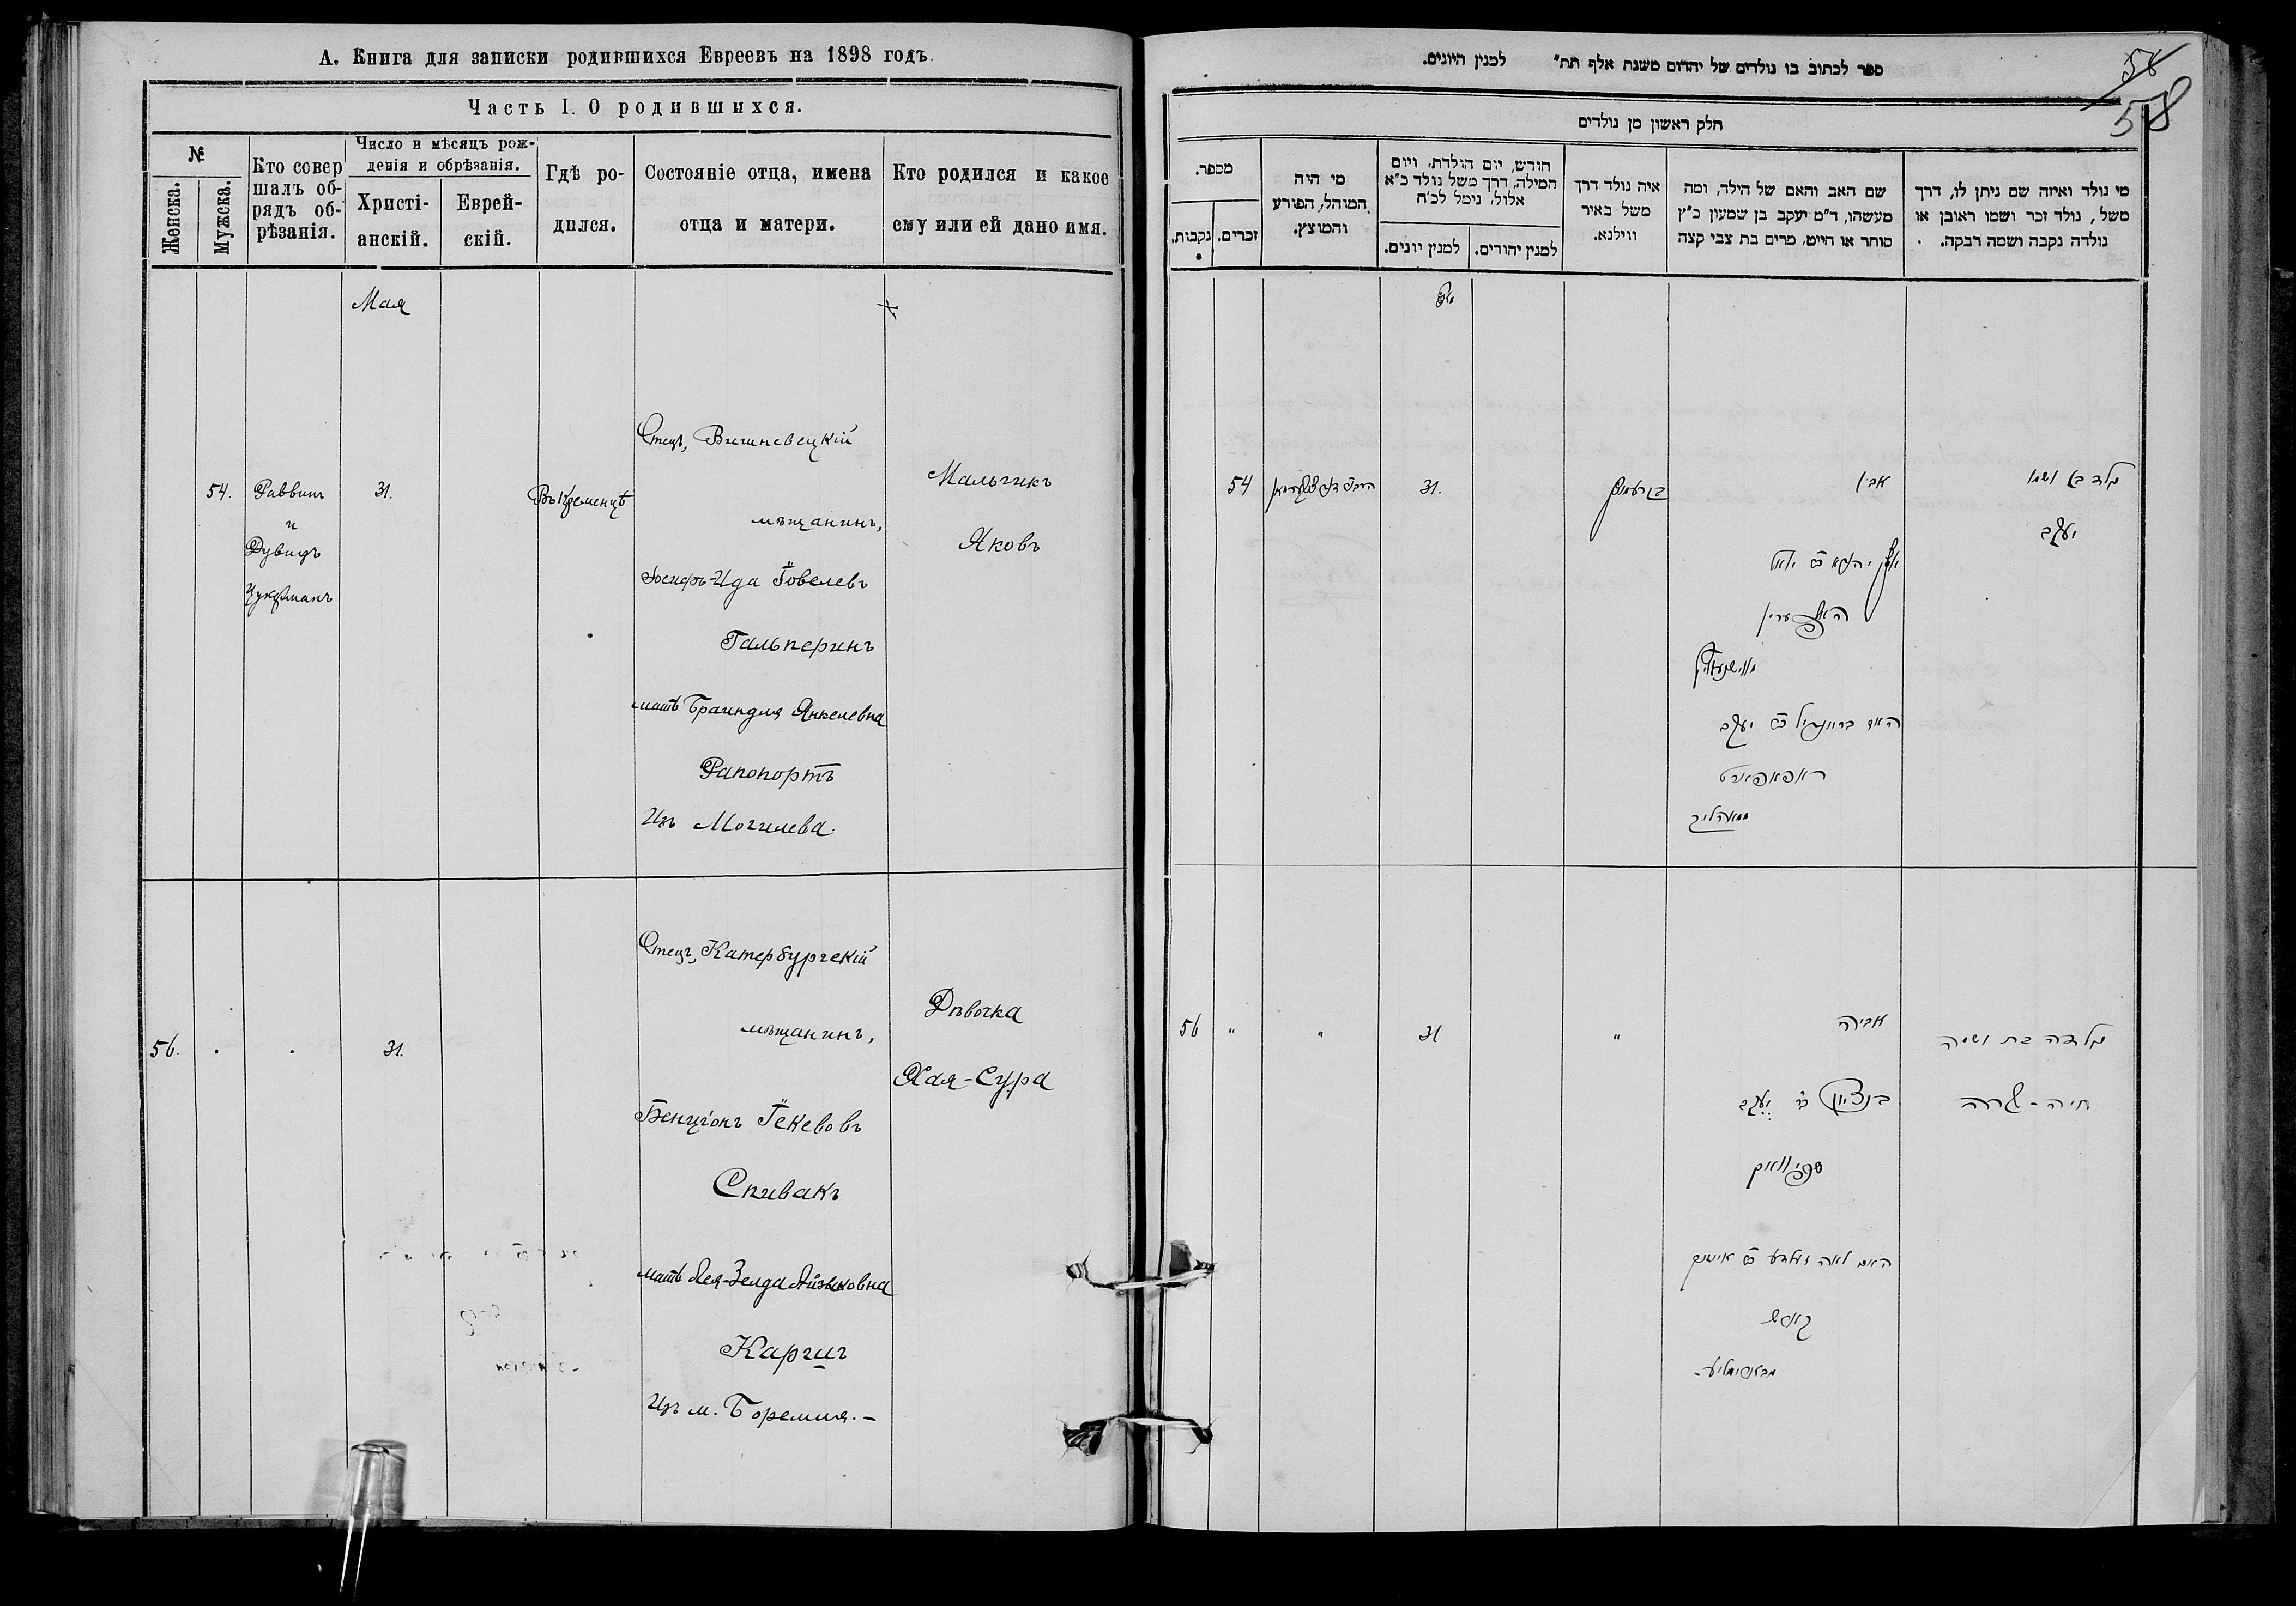 А. Книга для записки родившихся Евреевъ на 1898 годъ.
Часть I. О родившихся.
№
Женска.
Мужска.
Кто совер
шалъ об-
рядъ об-
рѣзанія.
Число и мѣсяцъ рож-
денія и обрѣзанія.
Христі-
анскій.
Еврей-
скій.
Гдѣ ро-
дился.
Состояніе отца, имена
отца и матери.
Кто родился и какое
ему или ей дано имя.
Мая
54.
Раввинъ
и
Дувидъ
Цукерманъ
31.
Въ Кременцѣ
Отецъ, Вишневецкій
мѣщанинъ,
Іосифъ-Ида Іовелевъ
Гальперинъ
мать Браиндля Янкелевна
Рапопортъ
Изъ Могилева.
Мальчикъ
Яковъ
56.
31.
Отецъ, Катербургскій
мѣщанинъ,
Бенціонъ Іекевовъ
Спивакъ
мать Лея-Зелда Айзыковна
Каргиг
Изъ м. Боремля. –
Дѣвочка
Хая-Сура
ספר לכתוב בו נולדים של יהדום משנת אלף תת״ למנין היונים.
58
58
חלק ראשון מן נולדים
מספר.
נקבות.
זכרים.
מי היה
המוהל, הפורע
והמוצץ.
חודש, יום הולדת, ויום
המילה, דרך משל נולד כ״א
אלול, נימל לכ״ח
למנין יונים.
למנין יהודים.
איה נולד דרך
משל באיר
ווילנא.
שם האב והאם של הילד, ומה
מעשהו, ד״מ יעקב בן שמעון כ״ץ
סוחר או חייט, מרים בת צבי קצה
מי נולד ואיזה שם ניתן לו, דרך
משל, נולד זכר ושמו ראובן או
נולדה נקבה ושמה רבקה.
מאי
54
31.
אביו
האלפערין
האם בריינדיל בת יעקב
ראפאפארט
נולד בן ושמו
יעקב
56
״
״
31
״
אביה
בנציון בר יעקב
ספיוואק
האם לאה זעלדע בת אייזיק
נולדה בת ושמה
חיה-שרה